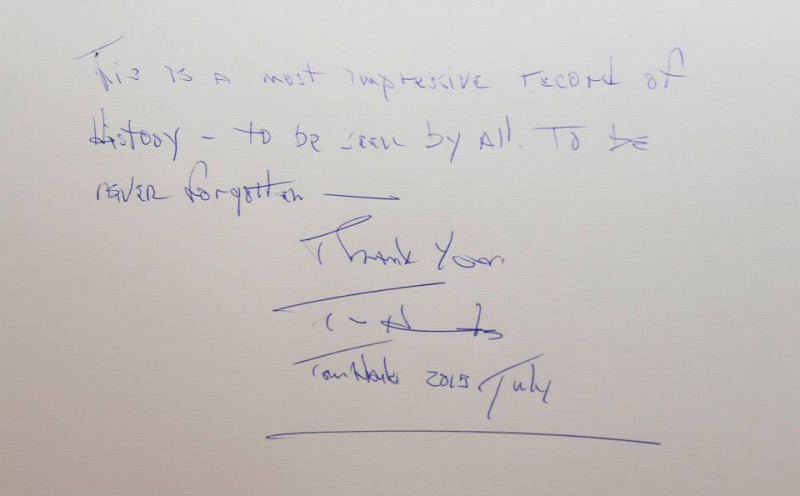 This is a most impressive record of
History - to be seen by All. To be
never forgotten —
Thank You.
Tom Hanks 2015 July